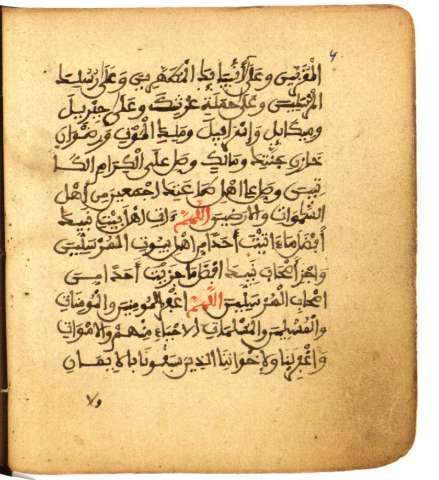 المقربين وعلى أنبيائك المطهرين وعلى رسلك
المرسلين وعلى حملة عرشك وعلى جبريل
وميكايل وإسرافيل وملك الموت ورضوان
خازن جنتك ومالك وصل على الكرام الكا
تبين وصل على اهل طاعتك اجمعين من اهل
السموات والارضين اللهم وات اهل بيت نبيك
أفضل ما ءاتيت أحدا من اهل بيوت المرسلين
واجز أصحاب نبيك افضل ما جزيت أحدا من
اصحاب المرسلين اللهم اغفر للمومنين والمومنات
والمسلمين والمسلمات الاحياء منهم والاموات
واغفر لنا ولإخواننا الذين سبقونا بالايمان
ولا